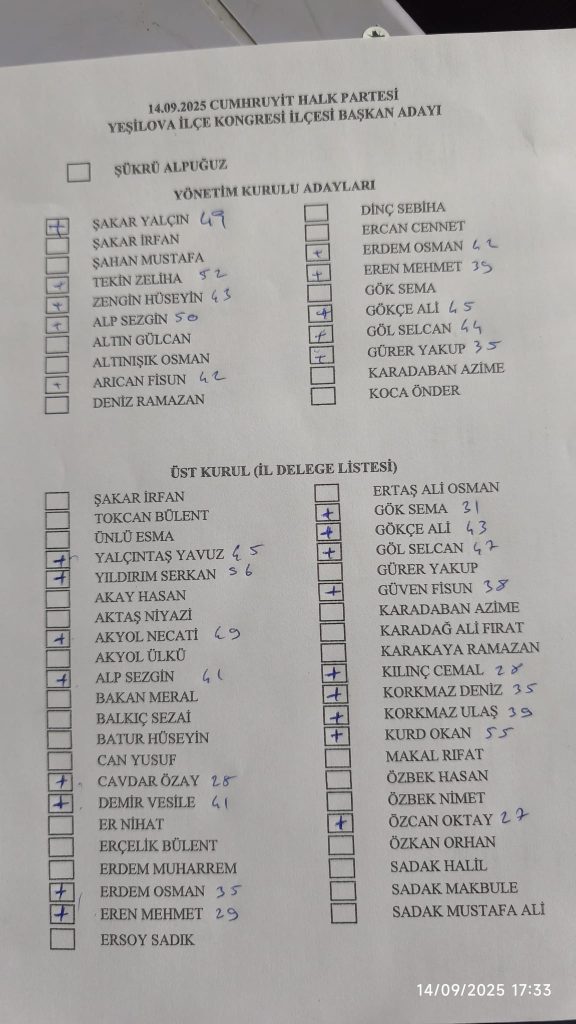 14.09.2025 CUMHRUYİT HALK PARTESİ
YEŞİLOVA İLÇE KONGRESİ İLÇESİ BAŞKAN ADAYI
ŞÜKRÜ ALPUĞUZ
YÖNETİM KURULU ADAYLARI
+ ŞAKAR YALÇIN 49
ŞAKAR İRFAN
ŞAHAN MUSTAFA
+ TEKİN ZELİHA 52
+ ZENGİN HÜSEYİN 43
+ ALP SEZGİN 50
ALTIN GÜLCAN
ALTINIŞIK OSMAN
+ ARICAN FİSUN 42
DENİZ RAMAZAN
DİNÇ SEBİHA
ERCAN CENNET
+ ERDEM OSMAN 42
+ EREN MEHMET 39
GÖK SEMA
+ GÖKÇE ALİ 45
+ GÖL SELCAN 44
+ GÜRER YAKUP 35
KARADABAN AZİME
KOCA ÖNDER
ÜST KURUL (İL DELEGE LİSTESİ)
ŞAKAR İRFAN
TOKCAN BÜLENT
ÜNLÜ ESMA
+ YALÇINTAŞ YAVUZ 45
+ YILDIRIM SERKAN 56
AKAY HASAN
AKTAŞ NİYAZİ
+ AKYOL NECATİ 49
AKYOL ÜLKÜ
+ ALP SEZGİN 41
BAKAN MERAL
BALKIÇ SEZAİ
BATUR HÜSEYİN
CAN YUSUF
+ CAVDAR ÖZAY 28
+ DEMİR VESİLE 41
ER NİHAT
ERÇELİK BÜLENT
ERDEM MUHARREM
+ ERDEM OSMAN 35
+ EREN MEHMET 29
ERSOY SADIK
ERTAŞ ALİ OSMAN
+ GÖK SEMA 31
+ GÖKÇE ALİ 43
+ GÖL SELCAN 47
GÜRER YAKUP
+ GÜVEN FİSUN 38
KARADABAN AZİME
KARADAĞ ALİ FIRAT
KARAKAYA RAMAZAN
+ KILINÇ CEMAL 28
+ KORKMAZ DENİZ 35
+ KORKMAZ ULAŞ 39
+ KURD OKAN 55
MAKAL RIFAT
ÖZBEK HASAN
ÖZBEK NİMET
+ ÖZCAN OKTAY 27
ÖZKAN ORHAN
SADAK HALİL
SADAK MAKBULE
SADAK MUSTAFA ALİ
14/09/2025 17:33